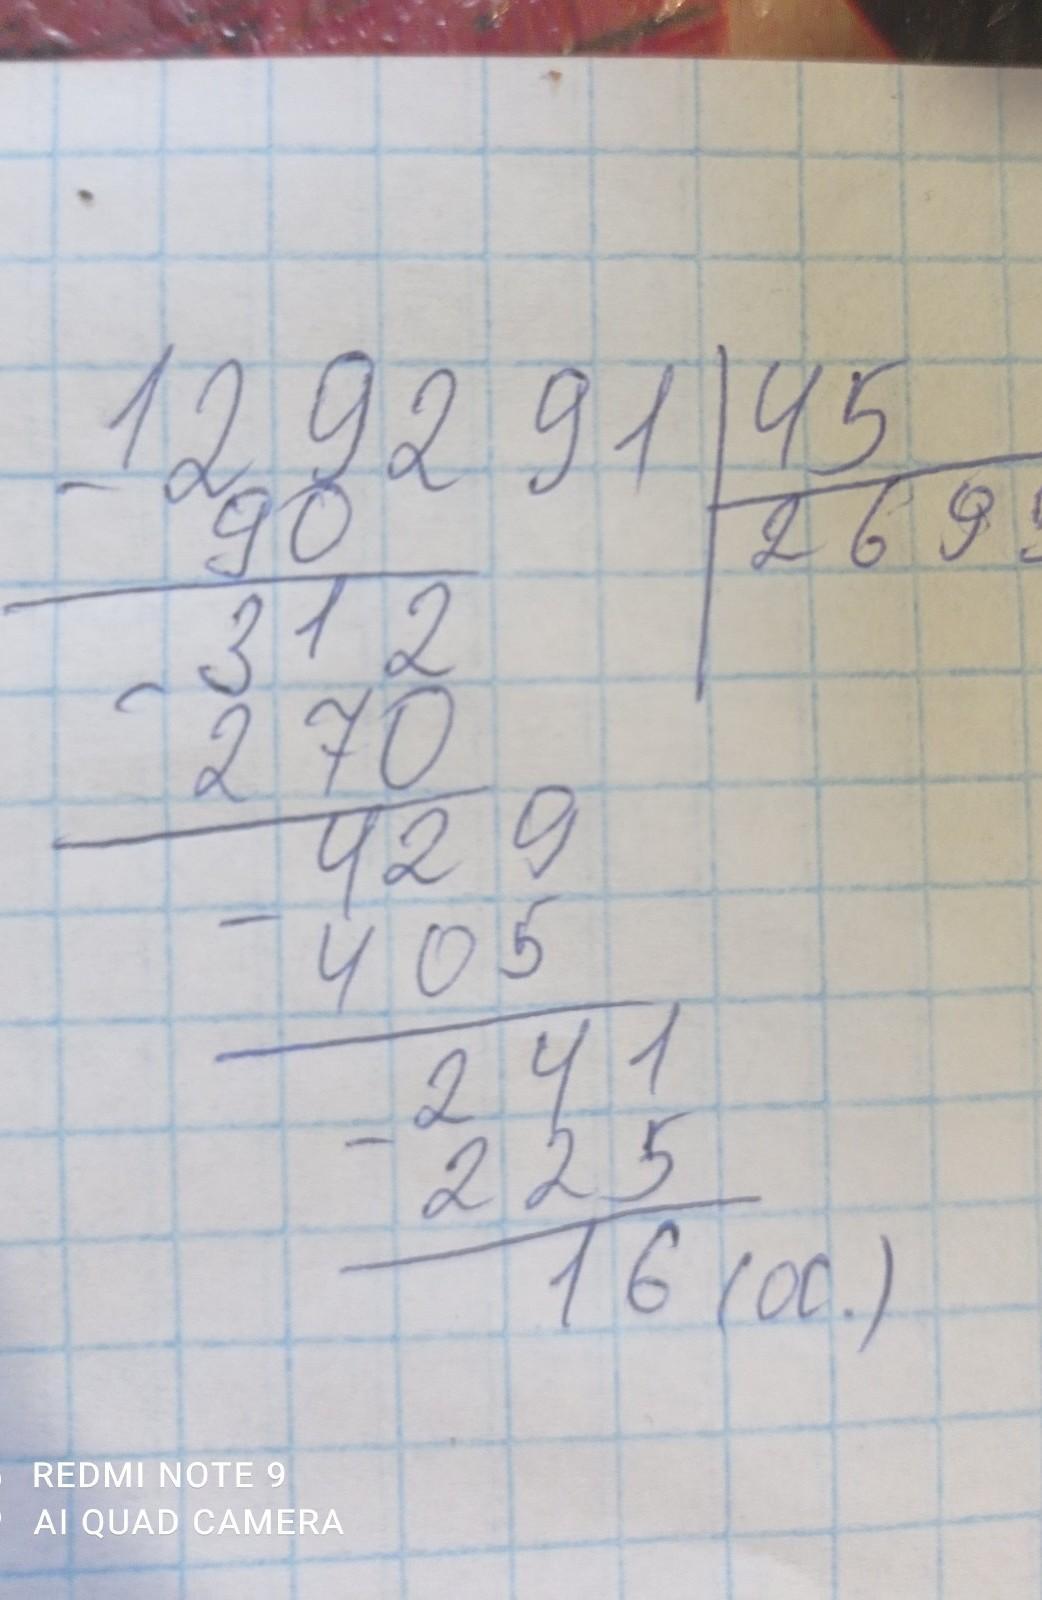 - 129291 | 45
90 2695
312
- 270
429
- 405
241
- 225
16 (ос.)
REDMI NOTE 9
AI QUAD CAMERA